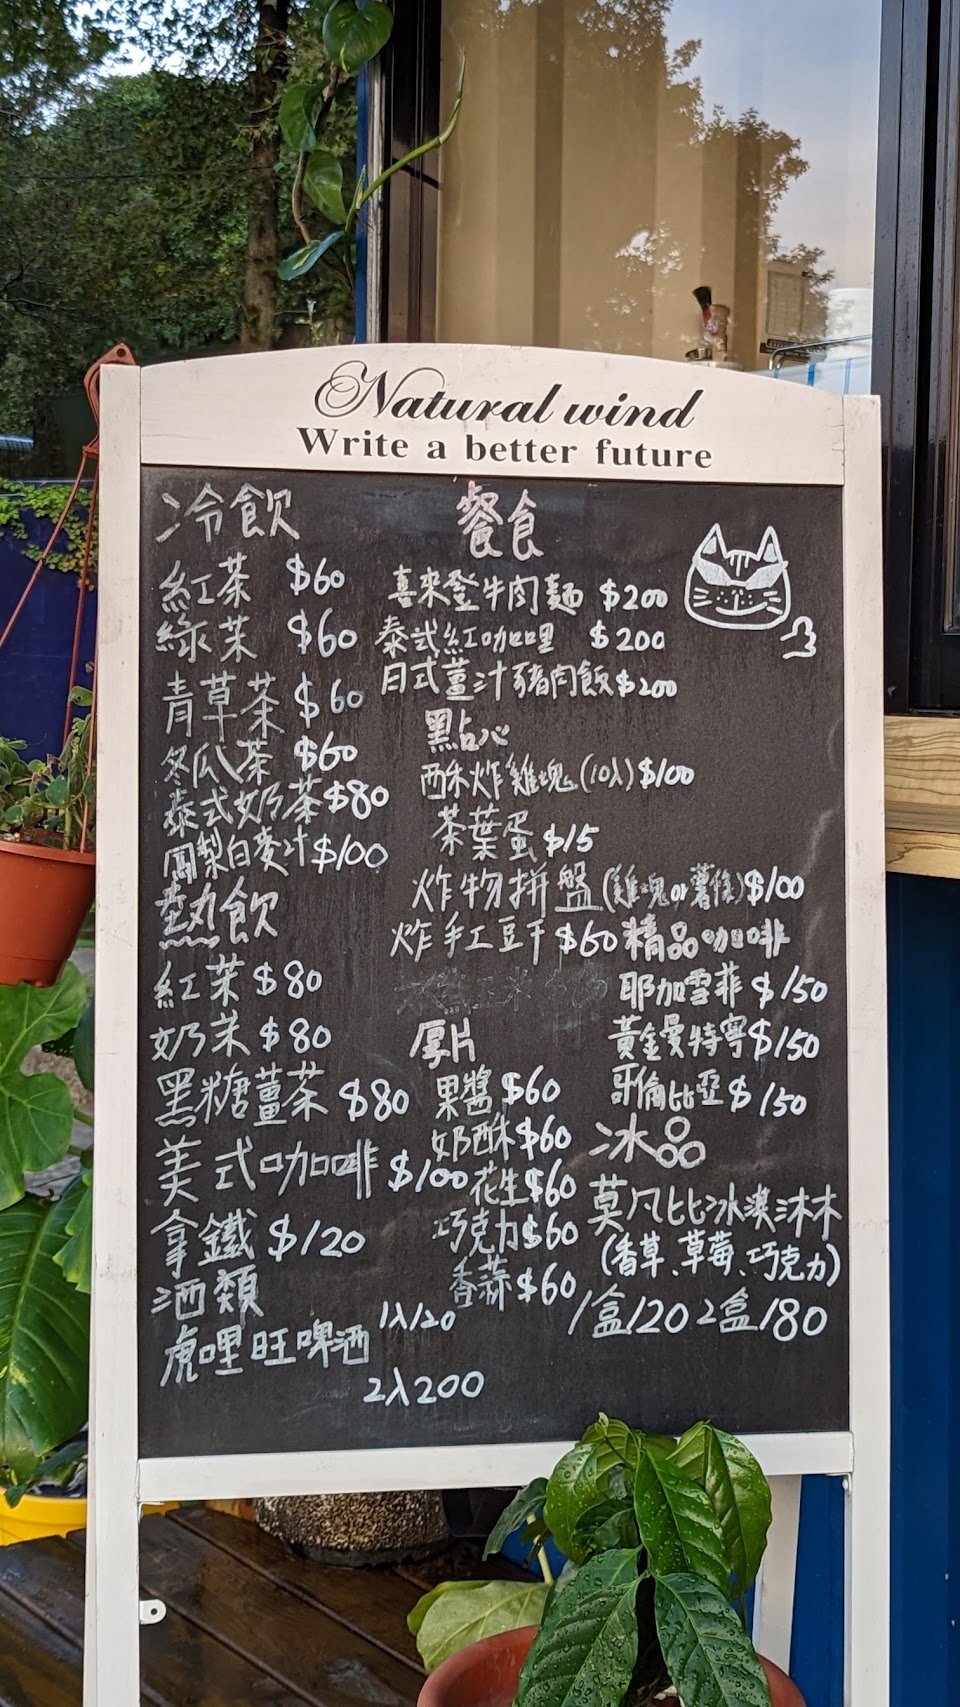 Natural wind
Write a better future
冷飲
紅茶 $60
綠茶 $60
青草茶 $60
冬瓜茶 $60
泰式奶茶 $80
鳳梨白麥汁 $100
熱飲
紅茶 $80
奶茶 $80
黑糖薑茶 $80
美式咖啡 $100
拿鐵 $120
酒類
虎哩旺啤酒 1入120
2入200
餐食
喜來登牛肉麵 $200
泰式紅咖哩 $200
日式薑汁豬肉飯 $200
點心
酥炸雞塊(10入) $100
茶葉蛋 $15
炸物拼盤(雞塊or薯條) $100
炸手工豆干 $60
厚片
果醬 $60
奶酥 $60
花生 $60
巧克力 $60
香蒜 $60
精品咖啡
耶加雪菲 $150
黃金曼特寧 $150
哥倫比亞 $150
冰品
莫凡比冰淇淋
(香草、草莓、巧克力)
1盒120 2盒180